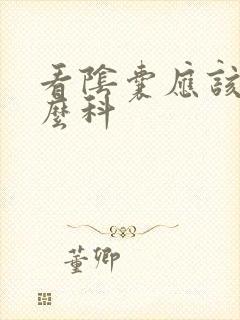 看陰囊應該
麼科
董卿